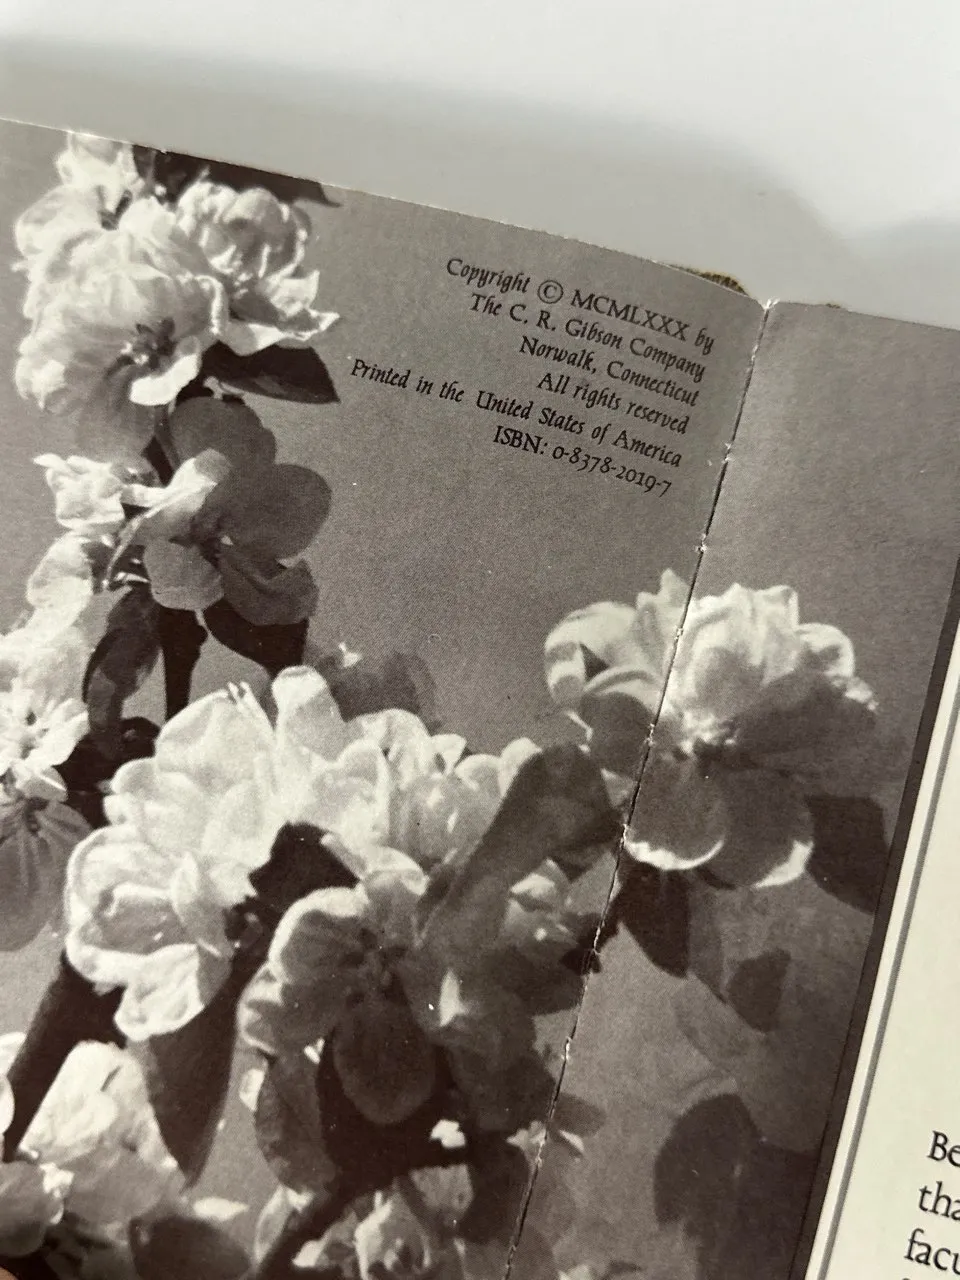 Copyright © MCMLXXX by
The C. R. Gibson Company
Norwalk, Connecticut
All rights reserved
Printed in the United States of America
ISBN: 0-8378-2019-7